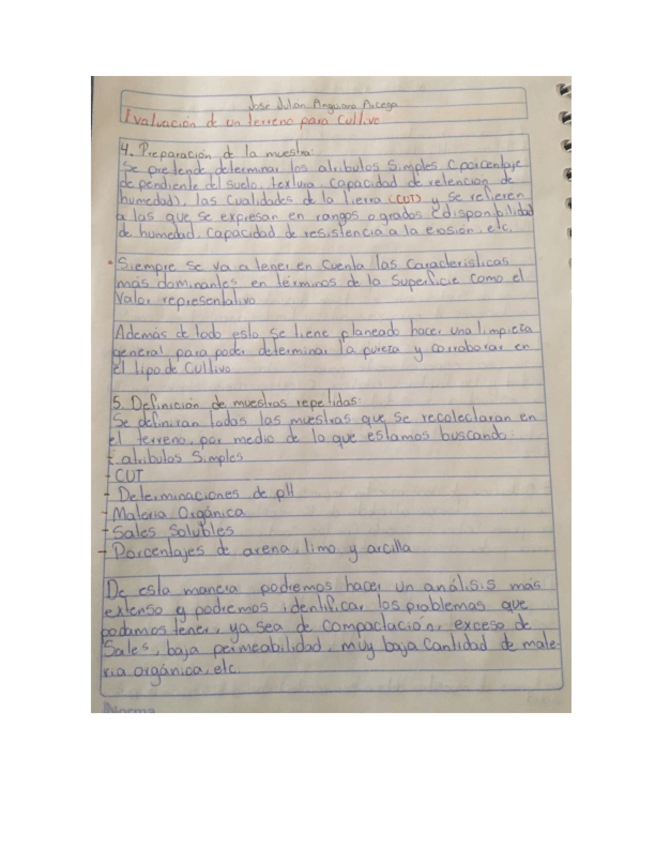 José Julián Anguiano Arcega
Evaluación de un terreno para Cultivo
4. Preparación de la muestra:
Se pretende determinar los atributos Simples (porcentaje
dependiente del suelo, textura, capacidad de retención de
humedad), las Cualidades de la Tierra (CUT) y se refieren
a las que se expresan en rangos o grados disponibilidad
de humedad, capacidad de resistencia a la erosión, etc.
• Siempre se va a tener en Cuenta las Características
más dominantes en términos de la Superficie como el
Valor representativo
Además de todo esto se tiene planeado hacer una limpieza
general para poder determinar la pureza y corroborar en
el tipo de Cultivo
5. Definición de muestras repetidas:
Se definiran todas las muestras que se recolectaran en
el terreno, por medio de lo que estamos buscando:
- atributos Simples
- CUT
- Determinaciones de pH
- Materia Orgánica
- Sales Solubles
- Porcentajes de arena, limo y arcilla
De esta manera podremos hacer un análisis más
extenso y podremos identificar los problemas que
podamos tener, ya sea de Compactación, exceso de
Sales, baja permeabilidad, muy baja Cantidad de mate-
ria orgánica, etc.
Norma